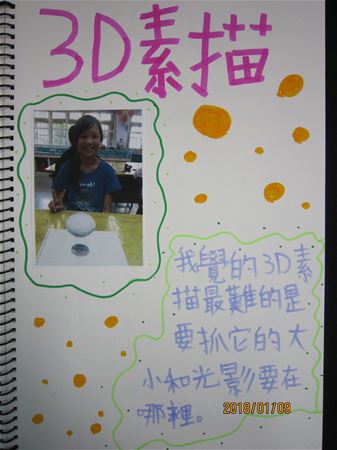 3D素描
我覺的3D素
描最難的是
要抓它的大
小和光影要在
哪裡。
2018/01/09